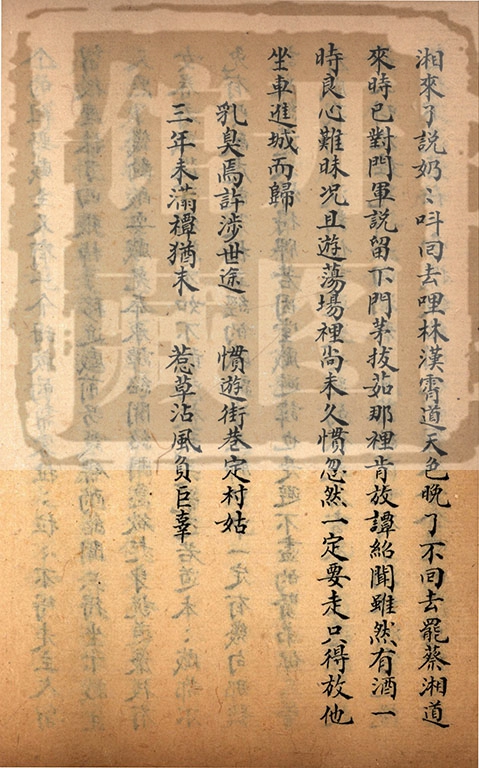 湘來了説奶〻呌囘去哩林漢霄道天色晩了不囘去罷蔡湘道
來時已對門軍説留下門茅拔茹那裡肯放譚紹聞雖然有酒一
時良心難昧况且遊蕩場裡尚未久慣忽然一定要走只得放他
坐車進城而歸
乳臭焉許涉世途　慣遊街巷定村姑
三年未滿禫猶未　惹草沾風負巨辜